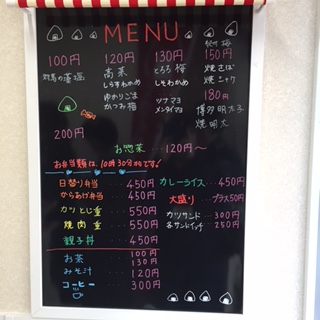 MENU
100円
対馬の藻塩
120円
高菜
しらすわかめ
ゆかりごま
かつお梅
130円
とろろ梅
しそわかめ
ツナマヨ
メンタイマヨ
150円
焼さば
焼シャケ
180円
博多明太子
焼明太
200円
お惣菜 ... 120円〜
お弁当類は、10時30分からです!
日替り弁当 ... 450円
からあげ弁当 ... 450円
カツとじ重 ... 550円
焼肉重 ... 550円
親子丼 ... 450円
カレーライス ... 450円
大盛り ... プラス50円
カツサンド ... 300円
各サンドイッチ ... 250円
お茶 ... 100円
130円
みそ汁 ... 120円
コーヒー ... 300円